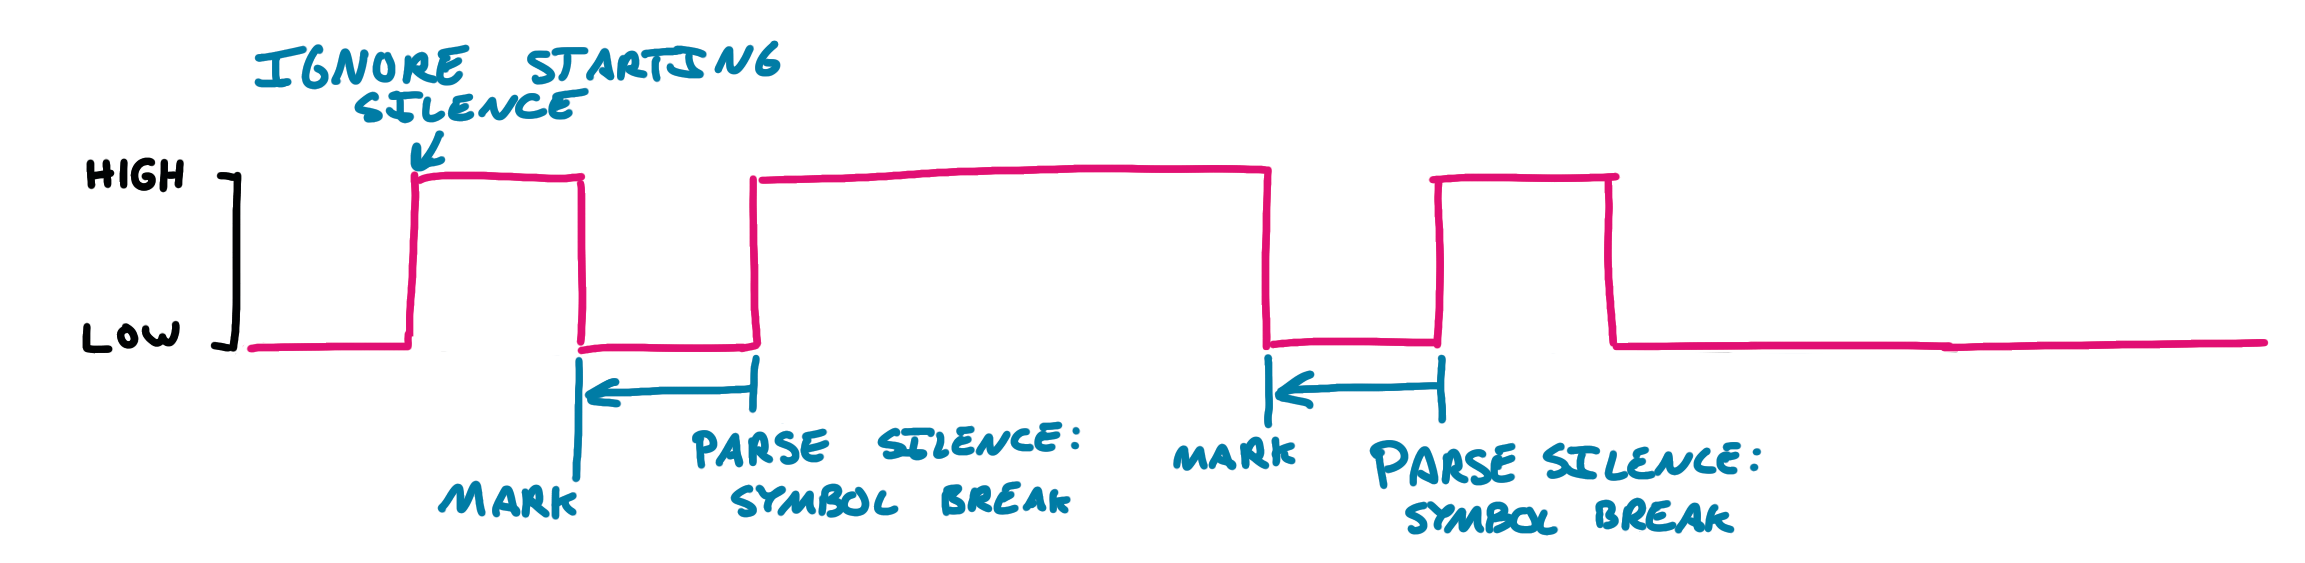 IGNORE STARTING
SILENCE
HIGH
LOW
MARK
PARSE SILENCE:
SYMBOL BREAK
MARK
PARSE SILENCE:
SYMBOL BREAK